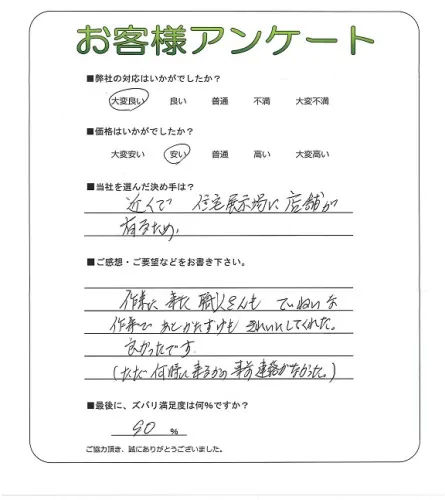 お客様アンケート
■弊社の対応はいかがでしたか？
大変良い 良い 普通 不満 大変不満
■価格はいかがでしたか？
大変安い 安い 普通 高い 大変高い
■当社を選んだ決め手は？
近くで 住宅展示場に店舗が
有るため.
■ご感想・ご要望などをお書き下さい。
作業に来た職人さんも ていねいな
作業で あとかたずけも きれいにしてくれた。
良かったです
(ただ何時に来るかの事前連絡がなかった。)
■最後に、ズバリ満足度は何%ですか？
90 %
ご協力頂き、誠にありがとうございました。